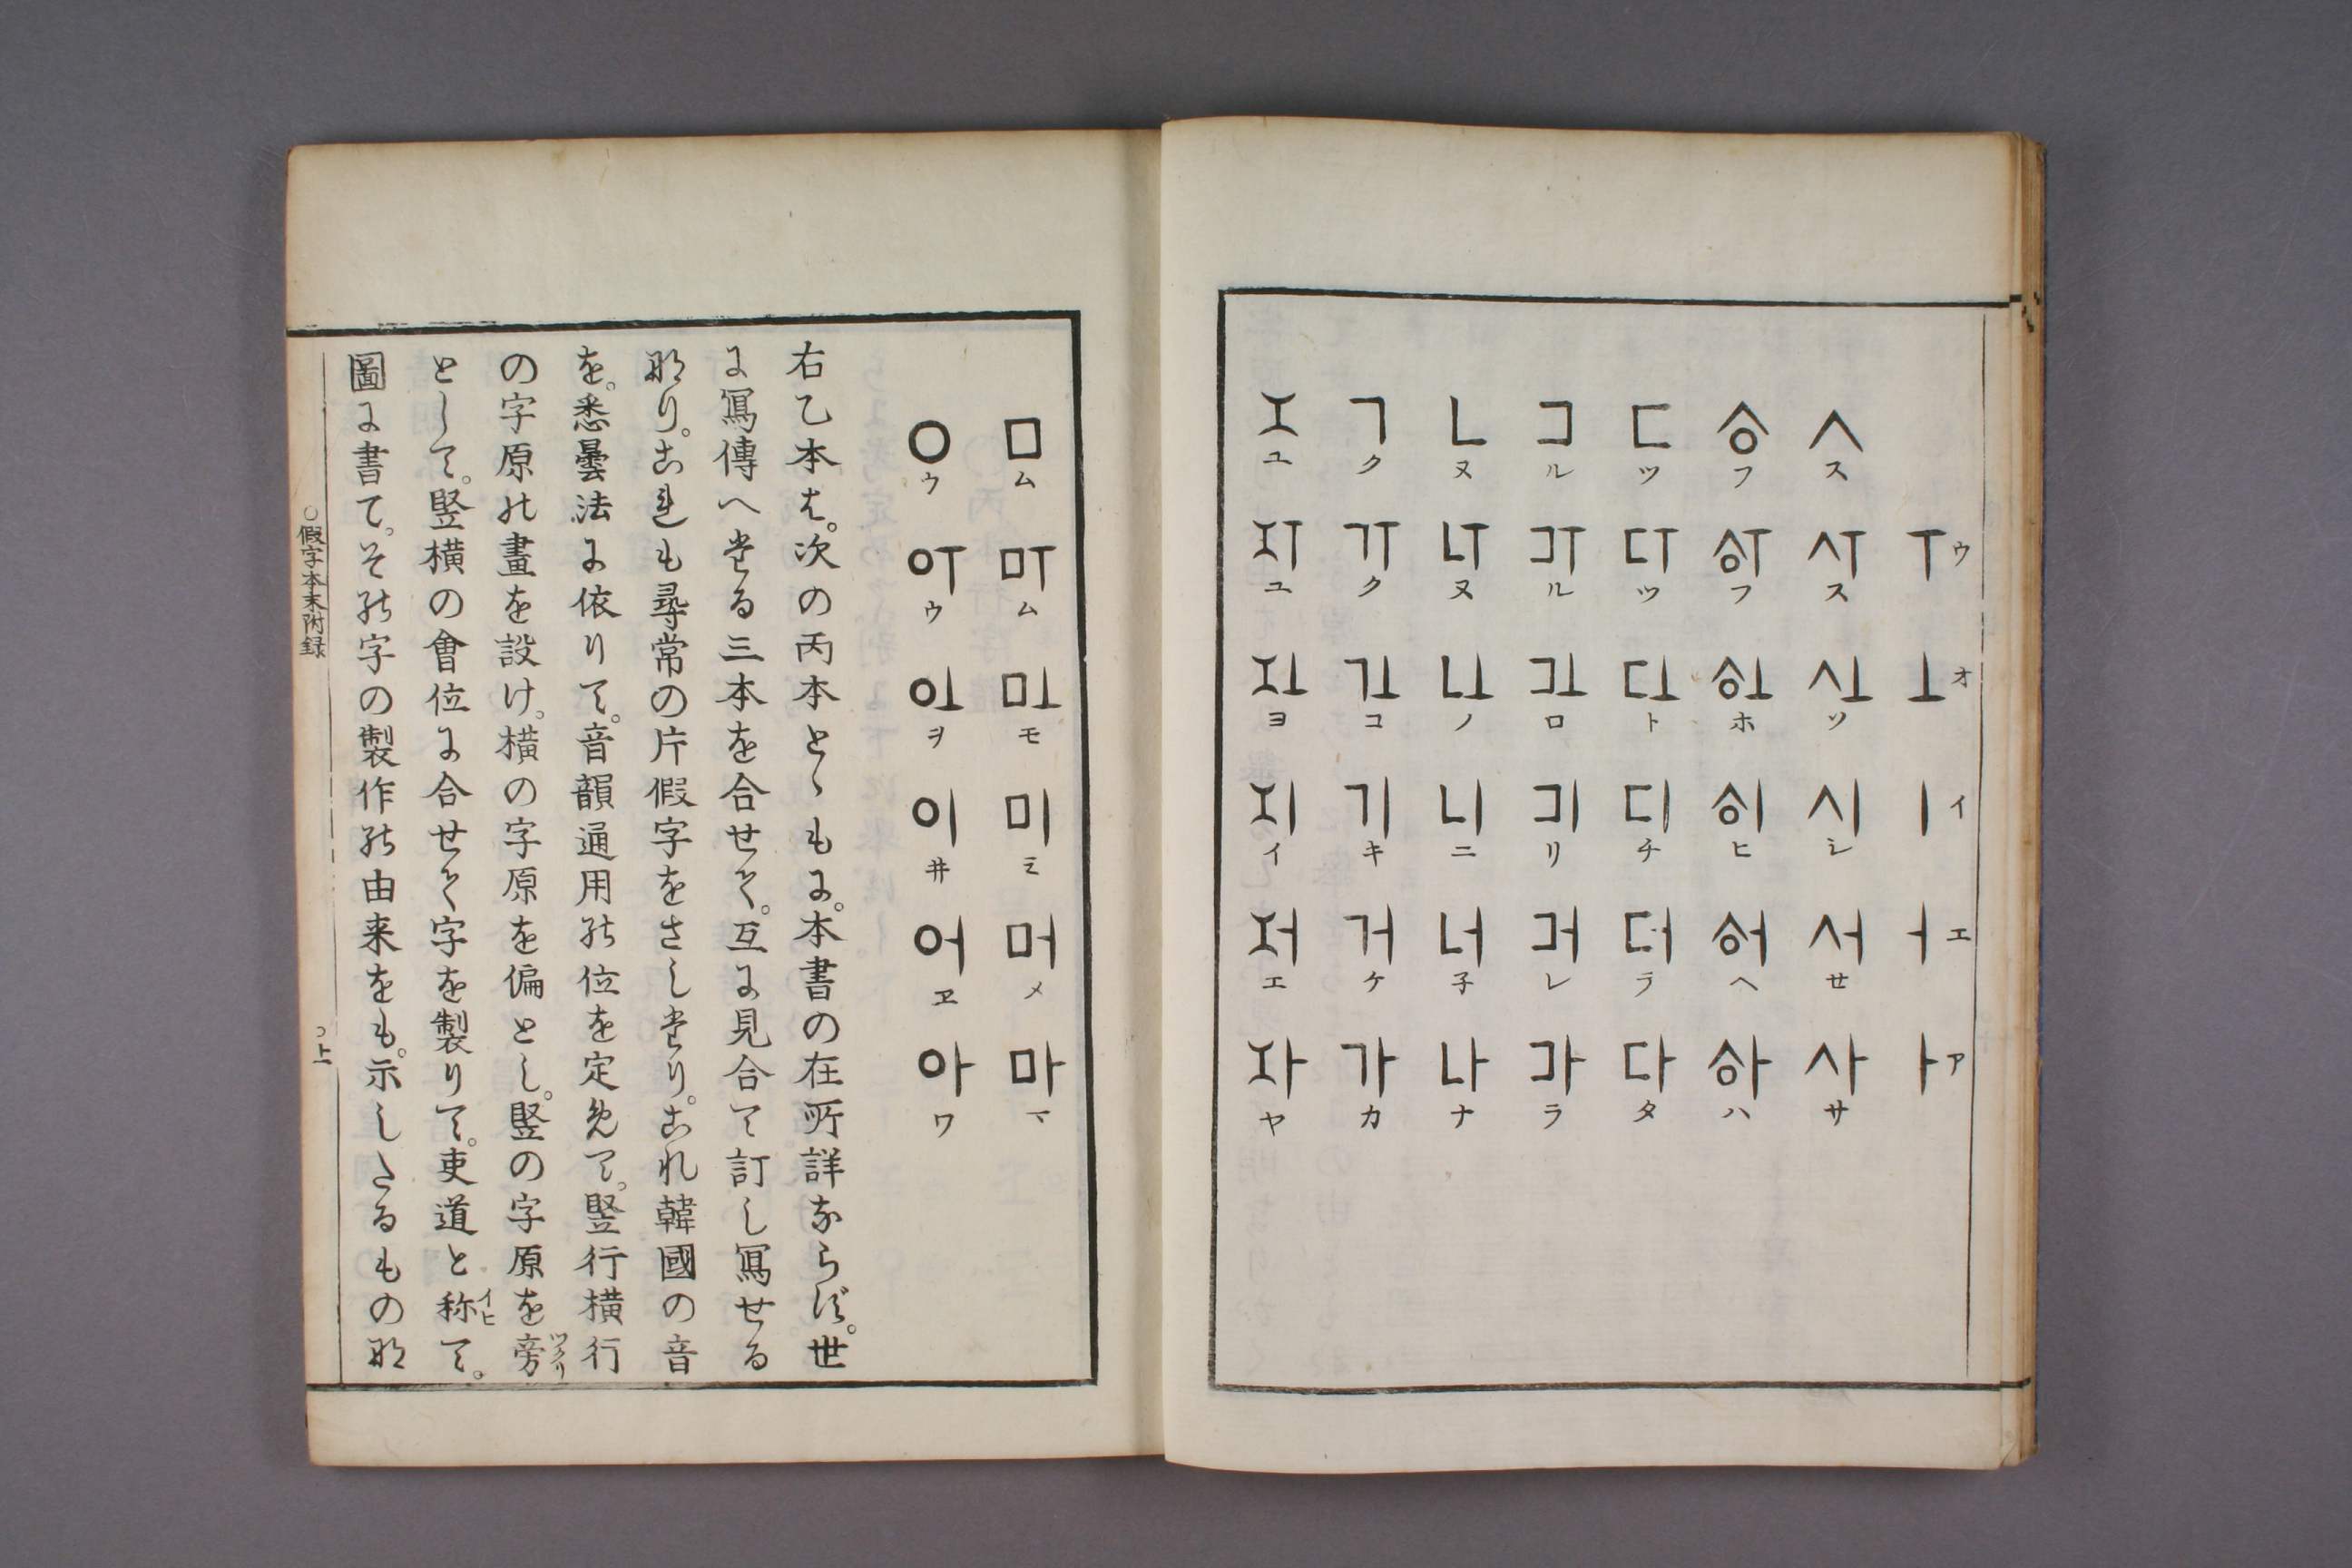 ㅜウ ㅗオ ㅣイ ㅓエ ㅏア
ㅅス ㅅㅜス ㅅㅗソ 시シ 서セ 사サ
ㅎフ ㅎㅜフ ㅎㅗホ 히ヒ 허ヘ 하ハ
ㄷツ ㄷㅜツ ㄷㅗト 디チ 더ラ 다タ
コル コㅜル コㅗロ コㅣリ コㅓレ コㅏラ
ㄴヌ ㄴㅜヌ ㄴㅗノ 니ニ 너子 나ナ
ㄱク ㄱㅜク ㄱㅗコ 기キ 거ケ 가カ
ㅈユ ㅈㅜユ ㅈㅗヨ 지イ 저エ 자ヤ
ㅁム ㅁㅜム ㅁㅗモ 미ミ 머メ 마マ
ㅇウ ㅇㅜウ ㅇㅗヲ 이井 어ヱ 아ワ
右乙本は。次の丙本とゝもに。本書の在所詳ならず。世
に寫傳へたる三本を合せて。互に見合て訂し寫せる
なり。これも尋常の片假字をさしたり。これ韓國の音
を。悉曇法に依りて。音韻通用の位を定めて。竪行横行
の字原の畫を設け。横の字原を偏とし。竪の字原を旁ツクリ
として。竪横の會位に合せて字を製りて。吏道と称イヒて。
圖に書て。その字の製作の由来をも。示したるものな
○假字本末附録
上